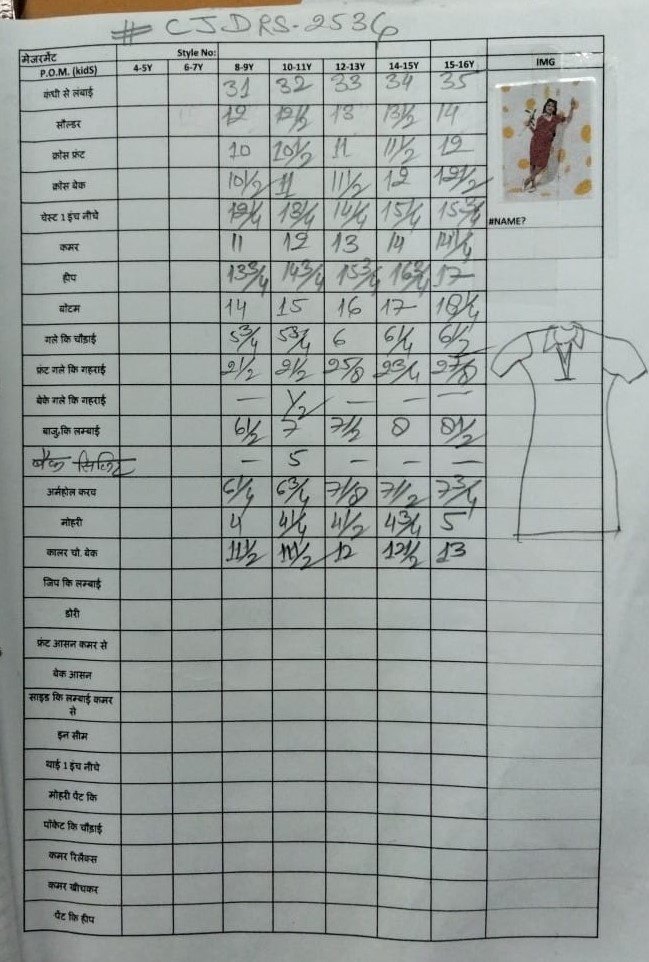 # CJDRS-2536
मेजरमेंट Style No:
P.O.M. (kidS) 4-5Y 6-7Y 8-9Y 10-11Y 12-13Y 14-15Y 15-16Y IMG
कंधी से लंबाई 31 32 33 34 35
सौल्डर 12 12 1/2 13 13 1/2 14
क्रोस फ्रंट 10 10 1/2 11 11 1/2 12
क्रोस बेक 10 1/2 11 11 1/2 12 12 1/2
चेस्ट 1 इंच नीचे 12 1/4 13 1/4 14 1/4 15 1/4 15 3/4
#NAME?
कमर 11 12 13 14 14 1/4
हीप 13 3/4 14 3/4 15 3/4 16 3/4 17
बोटम 14 15 16 17 18 1/4
गले कि चौड़ाई 5 3/4 5 3/4 6 6 1/4 6 1/2
फ्रंट गले कि गहराई 2 1/2 2 1/2 2 5/8 2 3/4 2 7/8
बेके गले कि गहराई — 1/2 — — —
बाजु कि लम्बाई 6 1/2 7 7 1/2 8 8 1/2
बैक स्लिट — 5 — — —
अर्महोल करव 6 1/4 6 3/4 7 1/8 7 1/2 7 3/4
मोहरी 4 4 1/4 4 1/2 4 3/4 5
कालर चो. बेक 11 1/2 11 1/2 12 12 1/2 13
जिप कि लम्बाई
डोरी
फ्रंट आसन कमर से
बेक आसन
साइड कि लम्बाई कमर
से
इन सीम
थाई 1 इंच नीचे
मोहरी पेंट कि
पॉकेट कि चौड़ाई
कमर रिलैक्स
कमर खीचकर
पेंट कि हीप